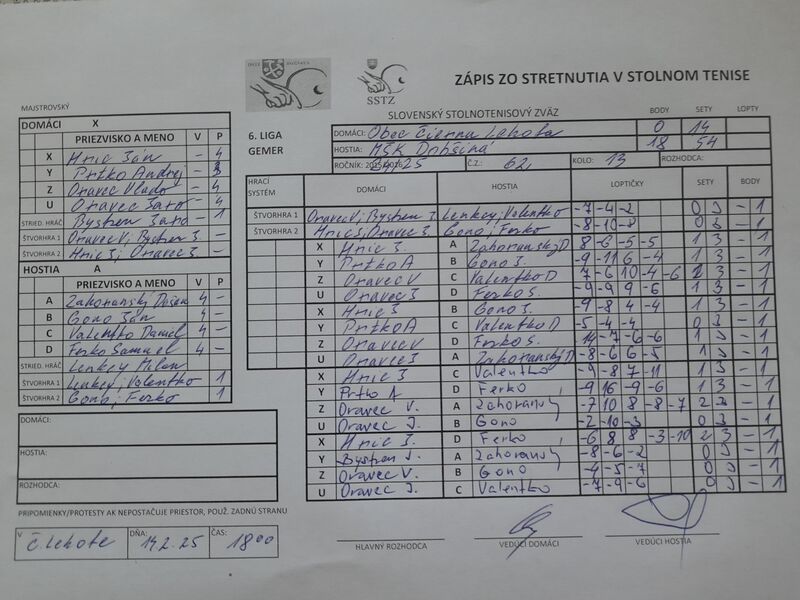 ZÁPIS ZO STRETNUTIA V STOLNOM TENISE
SSTZ
SLOVENSKÝ STOLNOTENISOVÝ ZVÄZ
BODY SETY LOPTY
6. LIGA
GEMER
DOMÁCI: Obec Čierna Lehota 0 14
HOSTIA: MŠK Dobšiná 18 54
ROČNÍK: Č.Z.: 62, KOLO: 13 ROZHODCA:
MAJSTROVSKÝ
DOMÁCI X
PRIEZVISKO A MENO V P
X Hric Ján – 4
Y Prtko Andrej – 3
Z Oravec Vlado – 4
U Oravec Jaro – 4
STRIED. HRÁČ Bystren Jaro – 1
ŠTVORHRA 1 Oravec V; Bystren J. –
ŠTVORHRA 2 Hric J; Oravec J. –
HOSTIA A
PRIEZVISKO A MENO V P
A Zahoranský Dušan 4 –
B Gono Ján 4 –
C Valentko Daniel 4 –
D Ferko Samuel 4 –
STRIED. HRÁČ Lenkey Milan
ŠTVORHRA 1 Lenkey; Valentko 1
ŠTVORHRA 2 Gono; Ferko 1
DOMÁCI:
HOSTIA:
ROZHODCA:
PRIPOMIENKY/PROTESTY AK NEPOSTAČUJE PRIESTOR, POUŽ. ZADNÚ STRANU
V Č. Lehote DŇA: 14.2.25 ČAS: 18 00
HRACÍ SYSTÉM DOMÁCI HOSTIA LOPTIČKY SETY BODY
ŠTVORHRA 1 Oravec V; Bystren J. Lenkey; Valentko -7 -4 -2 0 3 – 1
ŠTVORHRA 2 Hric J; Oravec J. Gono; Ferko -8 -10 -8 0 3 – 1
X Hric J A Zahoranský D 8 -6 -5 -5 1 3 – 1
Y Prtko A B Gono J. -9 -11 6 -4 1 3 – 1
Z Oravec V C Valentko D 7 -6 10 -4 -6 2 3 – 1
U Oravec J D Ferko S. -9 -9 9 -6 1 3 – 1
X Hric J B Gono J. -9 -8 4 -4 1 3 – 1
Y Prtko A C Valentko D -5 -4 -4 0 3 – 1
Z Oravec V D Ferko S. 14 -7 -6 -6 1 3 – 1
U Oravec J A Zahoranský D -8 -6 6 -5 1 3 – 1
X Hric J C Valentko -9 -8 7 -11 1 3 – 1
Y Prtko A D Ferko -9 16 -9 -6 1 3 – 1
Z Oravec V. A Zahoranský -7 10 8 -8 -7 2 3 – 1
U Oravec J. B Gono -2 -10 -3 0 3 – 1
X Hric J. D Ferko -6 8 8 -3 -10 2 3 – 1
Y Bystren J. A Zahoranský -8 -6 -2 0 3 – 1
Z Oravec V. B Gono -4 -5 -7 0 3 – 1
U Oravec J C Valentko -7 -9 -6 0 3 – 1
HLAVNÝ ROZHODCA VEDÚCI DOMÁCI VEDÚCI HOSTIA